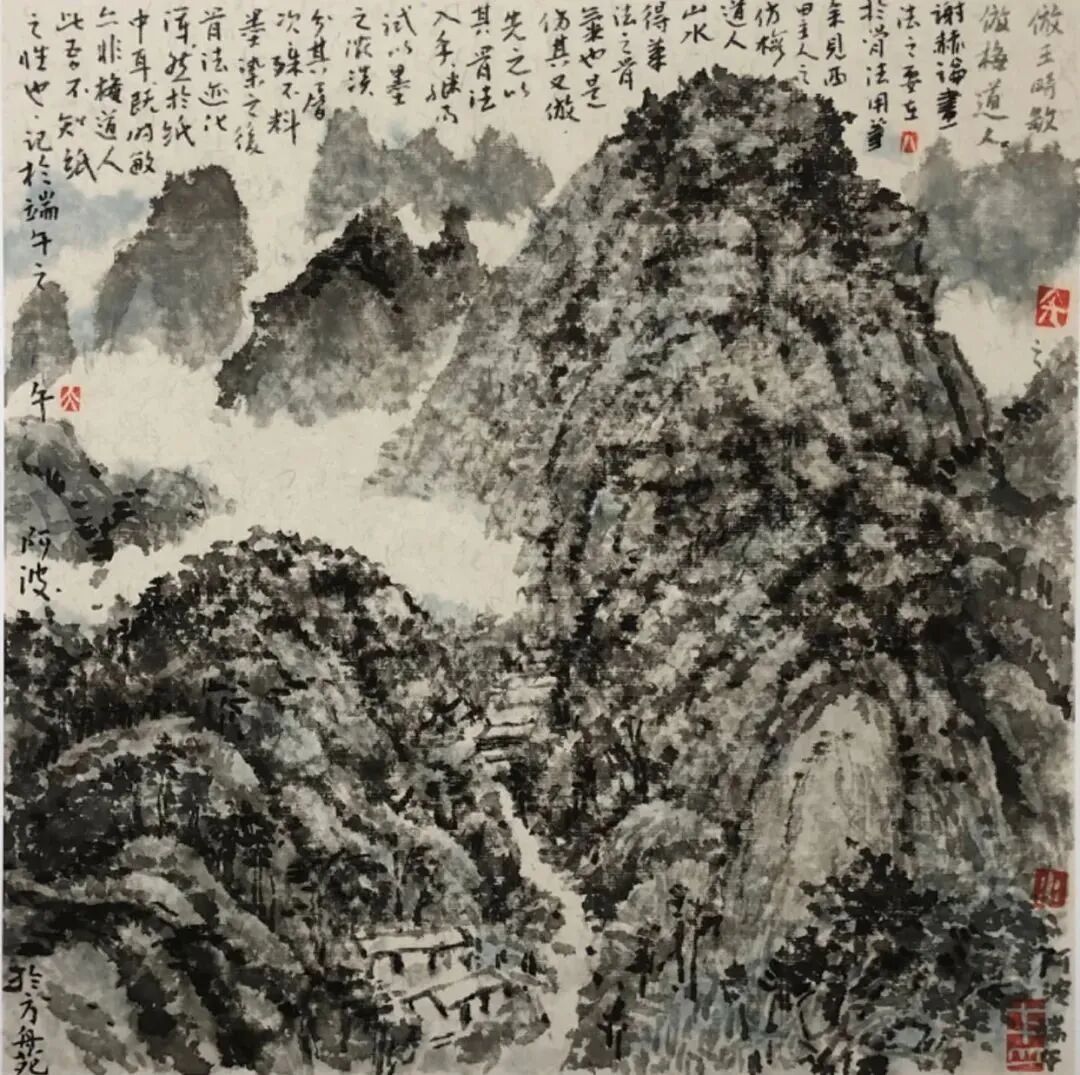 倣王時敏
倣梅道人。
谢赫論畫
法之要在
於骨法用筆
余見西
田主人之
仿梅
道人
山水
得筆
法之骨
也是
仿其又倣
先之以
其骨法
入手継而
試以墨
之濃淡
分其層
次殊不料
墨染之後
骨法迹化
渾然於紙
中耳 时敏
亦非梅道人
此吾不知紙
之性也.記於端午之
午
阿波
於方舟苑
阿波 端午